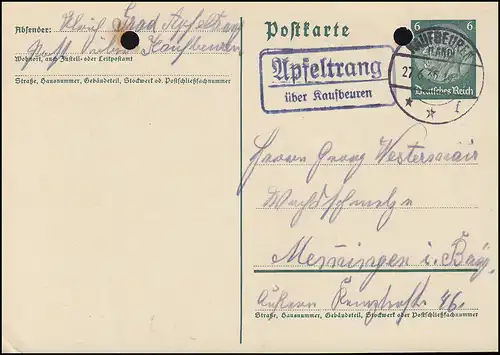 Absender:
Apfeltrang
Post über Kaufbeuren
Wohnort, auch Zustell- oder Leitpostamt
Straße, Hausnummer, Gebäudeteil, Stockwerk od. Postschließfachnummer
Postkarte
6 6
Deutsches Reich
KAUFBEUREN
LAND
27
f
Apfeltrang
über Kaufbeuren
Herrn Georg Westermair
Memmingen i. Bay.
46.
Straße, Hausnummer, Gebäudeteil, Stockwerk oder Postschließfachnummer